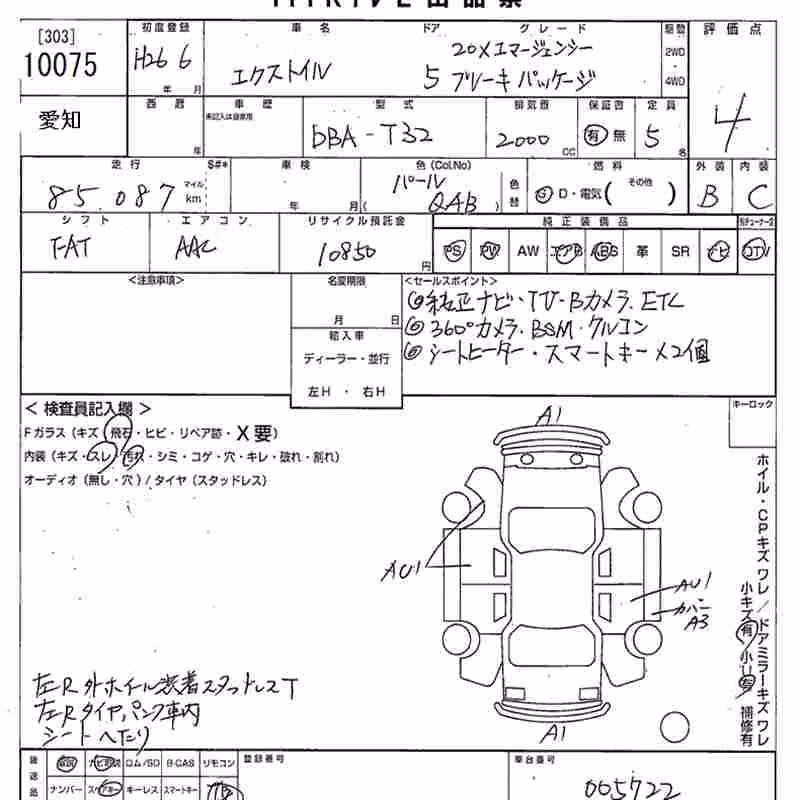 [303]
10075
初度登録
H26 6
年 月
車名
エクストレイル
ドア
5
グレード
20Xエマージェンシー
ブレーキパッケージ
駆動
2WD
4WD
評価点
4
愛知
西暦
年
車歴
未記入は自家用
型式
DBA-T32
排気量
2000
CC
保証書
有 無
定員
5
名
走行
85,087
マイル
km
S#*
車検
年 月
色(Col.No)
パール
(QAB)
色替
燃料
G D・電気(その他 )
外装
B
内装
C
シフト
FAT
エアコン
AAC
リサイクル預託金
10850
円
純正装備品
PS PW AW エアB ABS 革 SR ナビ TV
<注意事項>
名変期限
月 日
輸入車
ディーラー・並行
左H ・ 右H
<セールスポイント>
◎純正ナビ・TV・Bカメラ.ETC
◎360°カメラ.BSM・クルコン
◎シートヒーター・スマートキー×2個
<検査員記入欄>
Fガラス(キズ・飛石・ヒビ・リペア跡・X要)
内装(キズ・スレ・汚れ・シミ・コゲ・穴・キレ・破れ・割れ)
オーディオ(無し・穴)/タイヤ(スタッドレス)
キーロック
A1
AU1
AU1
カバー
A3
A1
ホイル・CPキズ ワレ/ドアミラーキズ ワレ
小キズ有 小U有 補修有
左R外ホイル装着スタッドレスT
左Rタイヤパンク車内
シートへたり
後送品
ロム/SD B-CAS リモコン
ナンバー スペアキー キーレス スマートキー
登録番号
車台番号
005722